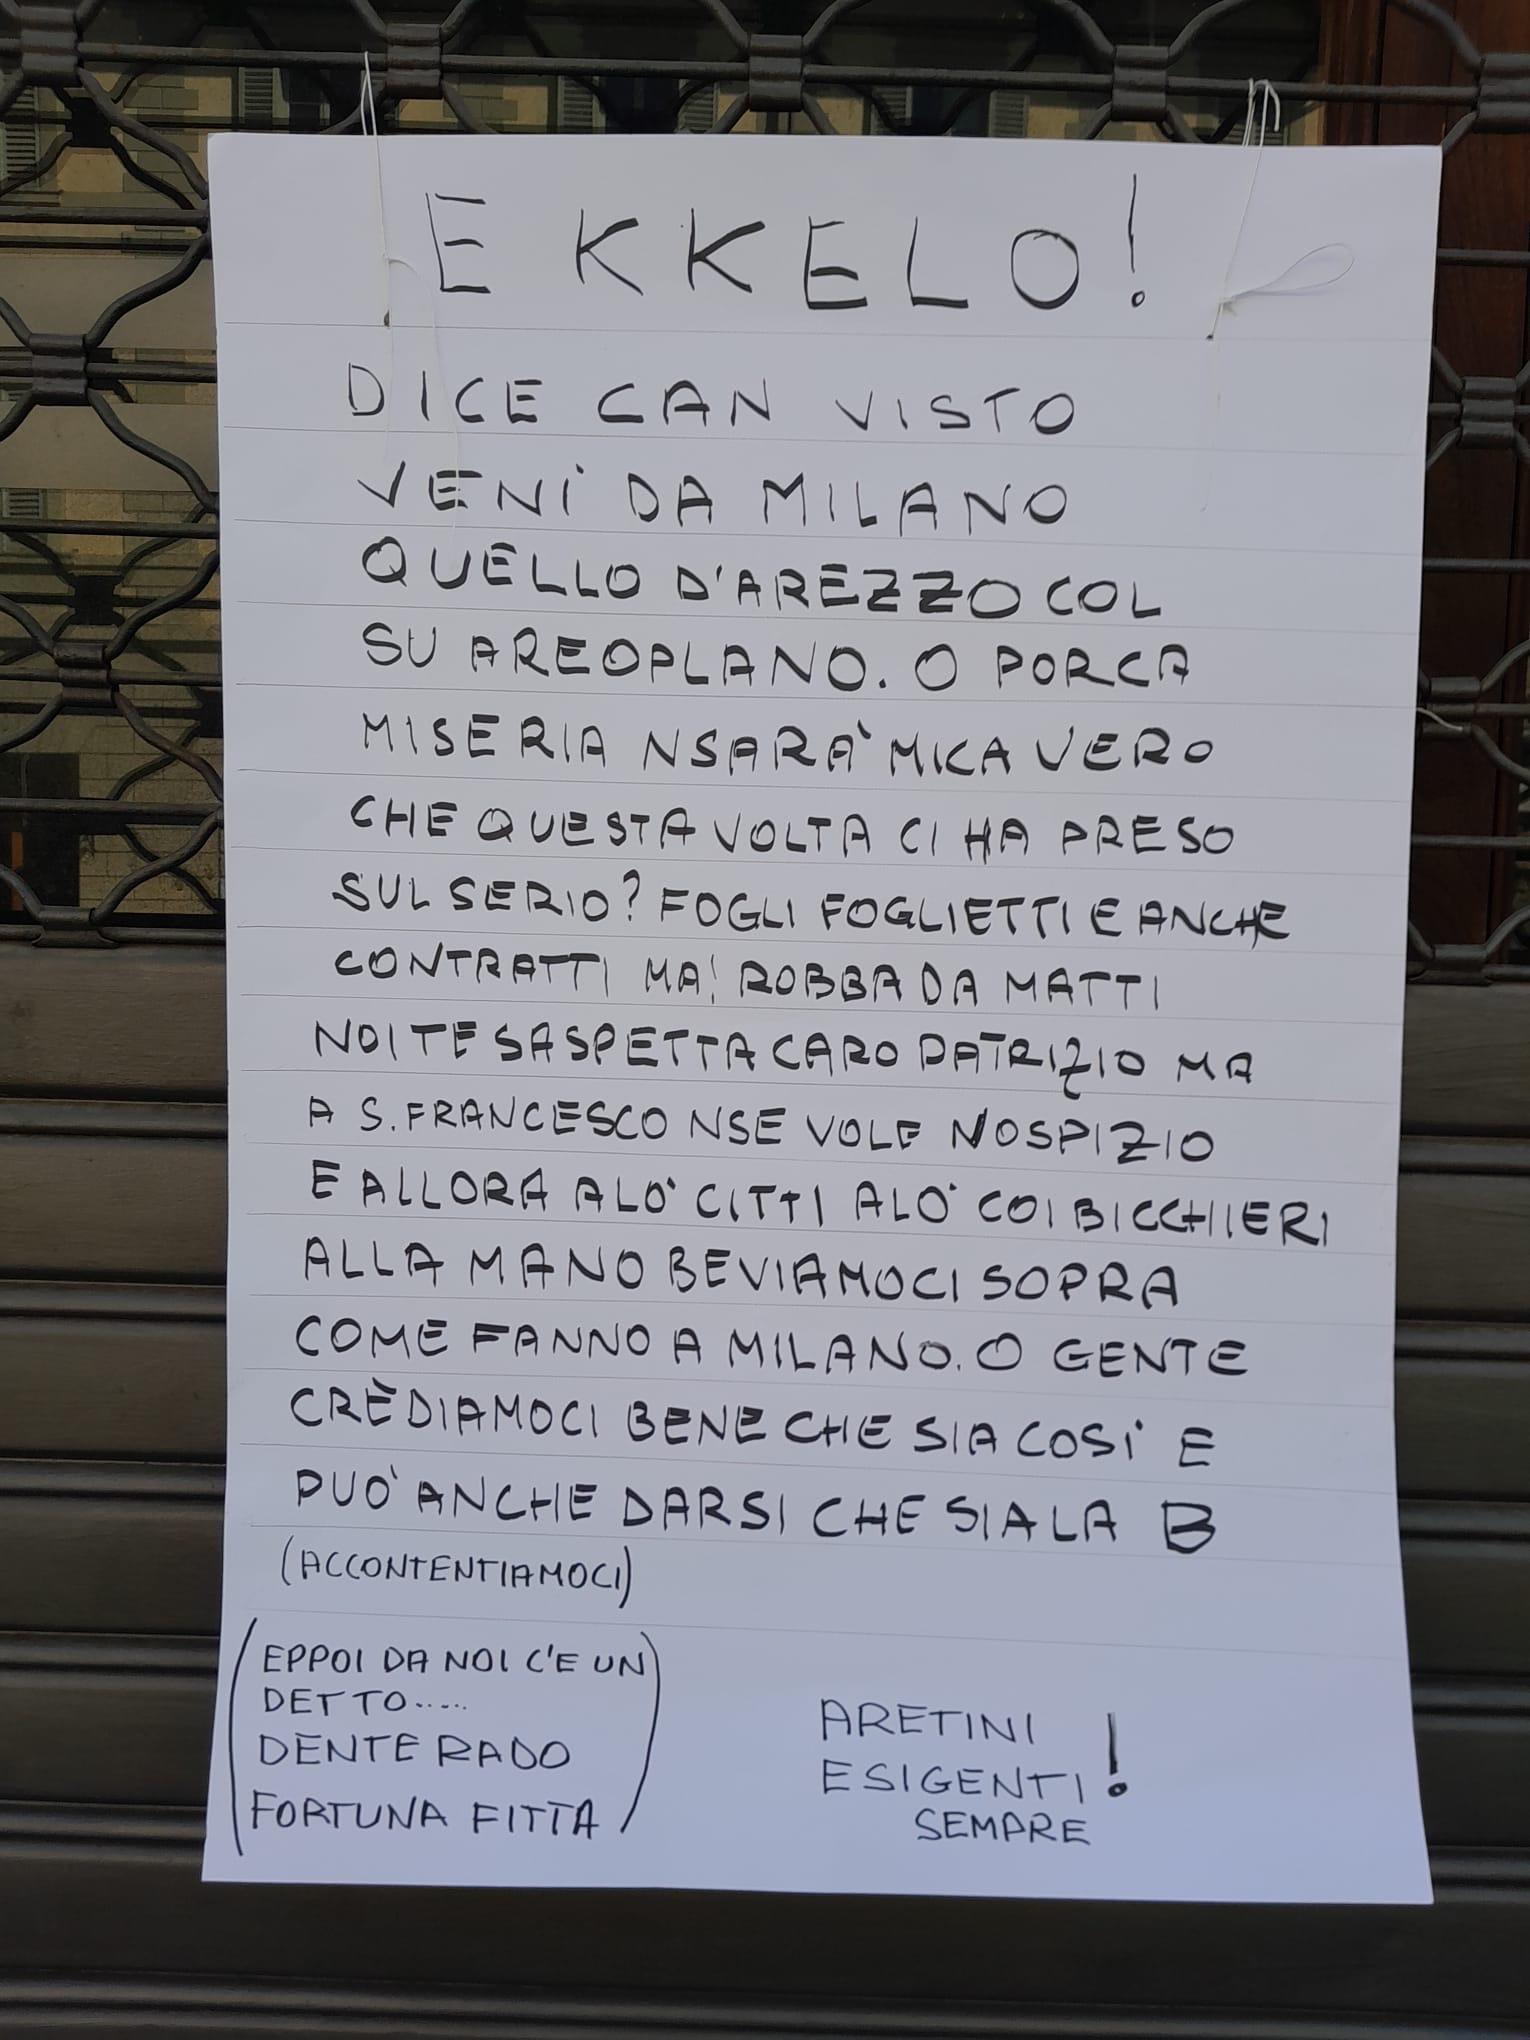 EKKELO!
DICE CAN VISTO
VENÌ DA MILANO
QUELLO D'AREZZO COL
SU AREOPLANO. O PORCA
MISERIA NSARA' MICA VERO
CHE QUESTA VOLTA CI HA PRESO
SUL SERIO? FOGLI FOGLIETTI E ANCHE
CONTRATTI MA! ROBBA DA MATTI
NOI TE SASPETTA CARO PATRIZIO MA
A S. FRANCESCO NSE VOLE NOSPIZIO
E ALLORA ALO' CITTI ALO' COI BICCHIERI
ALLA MANO BEVIAMOCI SOPRA
COME FANNO A MILANO. O GENTE
CRÈDIAMOCI BENE CHE SIA COSI' E
PUO' ANCHE DARSI CHE SIA LA B
(ACCONTENTIAMOCI)
(EPPOI DA NOI C'E UN
DETTO.....
DENTE RADO
FORTUNA FITTA)
ARETINI
ESIGENTI!
SEMPRE